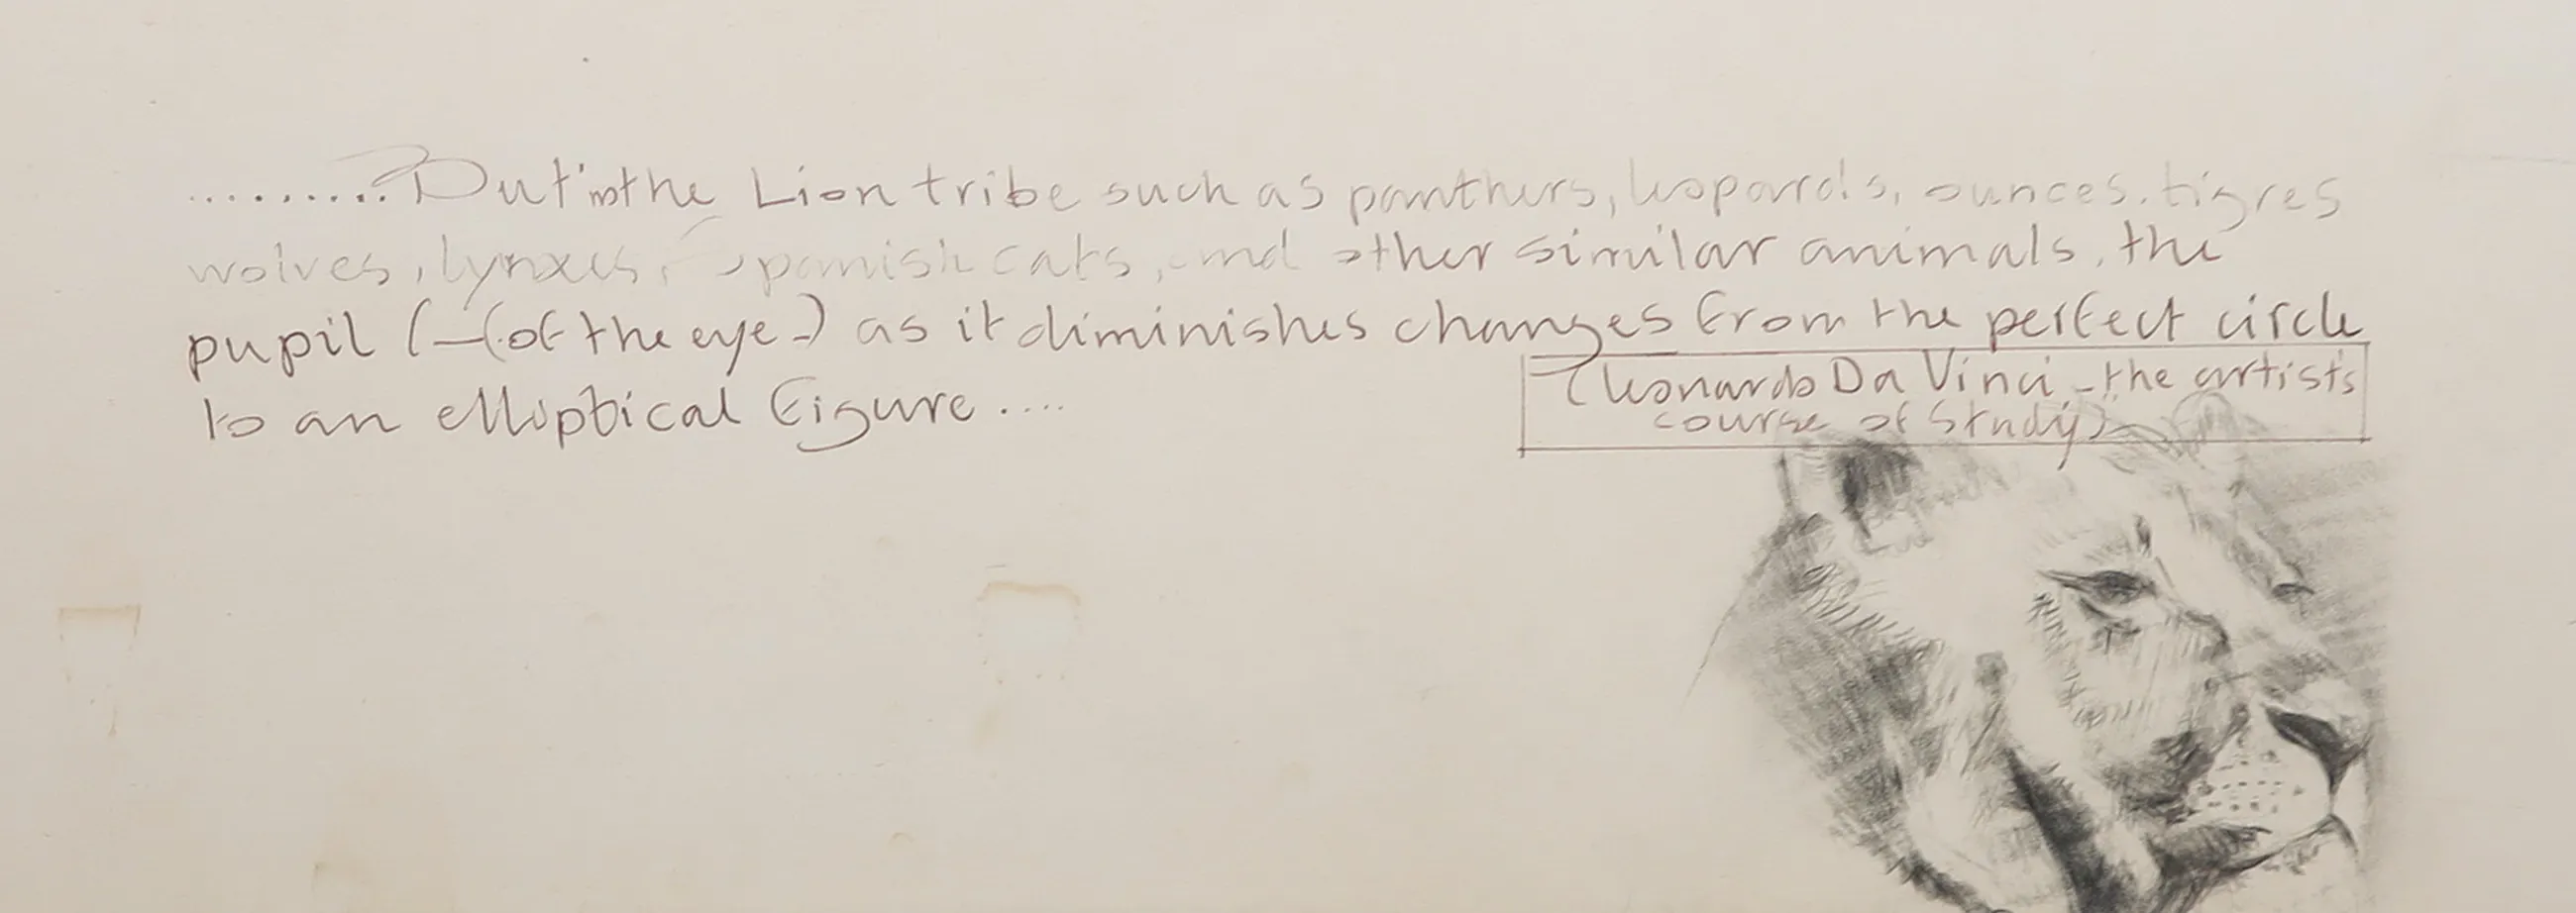 .......... But in the Lion tribe such as panthers, leopards, ounces, tigres
wolves, lynxes, Spanish cats, and other similar animals, the
pupil (-(of the eye-) as it diminishes changes from the perfect circle
to an elliptical figure....
(Leonardo Da Vinci - the artist's
course of Study)